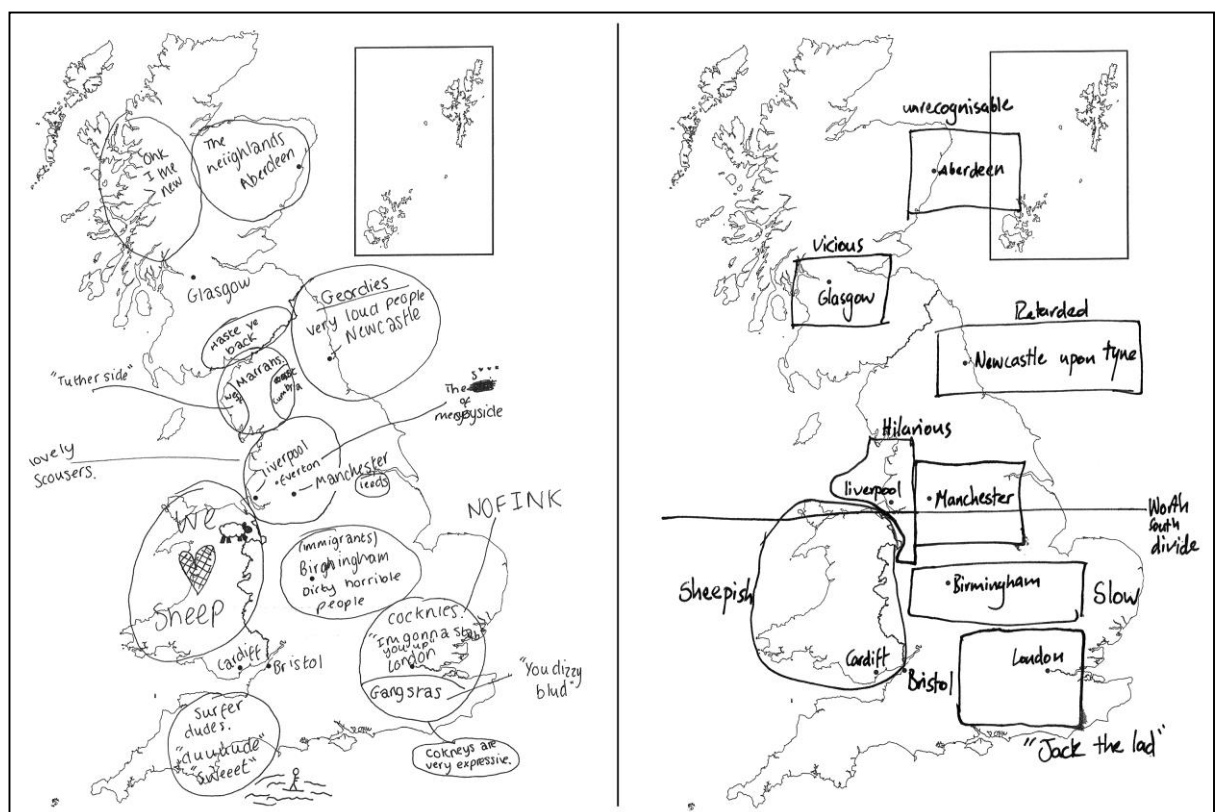 Ohk
I the
new
The
heiighlands
Aberdeen
Glasgow
Geordies
very loud people
Newcastle
Haste ye
back
"Tuther side"
Marrans.
west
east
cumbria
The
of
merseyside
lovely
scousers.
liverpool
Everton
Manchester
leeds
NOFINK
We
Sheep
(immigrants)
Birmingham
Dirty horrible
people
Cocknies.
"Im gonna stab
you up"
London
Gangstas
"You dizzy
blud"
Cokneys are
very expressive.
Cardiff
Bristol
Surfer
dudes.
"duuuude"
"sweeet"
unrecognisable
Aberdeen
Vicious
Glasgow
Retarded
Newcastle upon tyne
Hilarious
liverpool
Manchester
North
south
divide
Sheepish
Birmingham
Slow
Cardiff
Bristol
London
"Jack the lad"